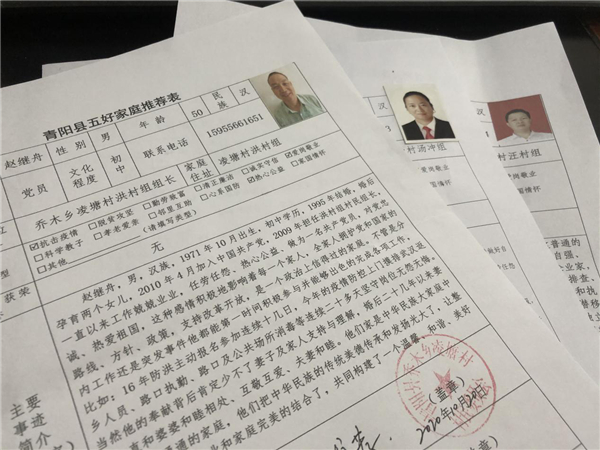 青阳县五好家庭推荐表
赵继舟 性别 男 年龄 50 民族 汉
党员 文化程度 初中 联系电话 15955661651
乔木乡凌塘村洪村组组长 家庭住址 凌塘村洪村组
☑抗击疫情 □脱贫攻坚 □勤劳致富 □清正廉洁 □诚实守信 ☑爱岗敬业
□科学教子 □孝老爱亲 □邻里互助 □心系国防 ☑热心公益 □家国情怀
□其他 (请填写类型)
获荣 无
赵继舟，男，汉族，1971年10月出生，初中学历，1995年结婚，婚后
孕育两个女儿，2010年4月加入中国共产党，2009年担任洪村组村民组长，
一直以来工作兢兢业业，任劳任怨，热心公益，做为一名共产党员，对党忠
诚、热爱祖国，这种感情积极地影响着每一个家人，全家人拥护党和国家的
路线、方针、政策，支持改革开放，是一个政治上信得过的家庭。不管是分
内工作还是突发事件他都能第一时间积极参与并能够出色的完成各项工作，
比如：16年防洪主动报名参加连续十九日，今年的疫情防控上门摸排武汉返
乡人员、路口执勤、路口及公共场所消毒等连续二十多天坚守岗位无怨无悔。
当然他的奉献背后肯定少不了妻子及家人支持与理解，婚后二十九年以来妻
直和婆婆和睦相处、互敬互爱、夫妻和睦。他们家是中华民族大家庭中
通的家庭，他们把中华民族的传统美德传承和发扬光大了，让整
和家庭完美的结合了，共同构建了一个温馨、和谐、美好
主要
事迹
简介
(盖章)
2020年10月20日
乔木乡凌塘村
村汤冲组
☑爱岗敬业
□家国情怀
村汪村组
☑爱岗敬业
□家国情怀